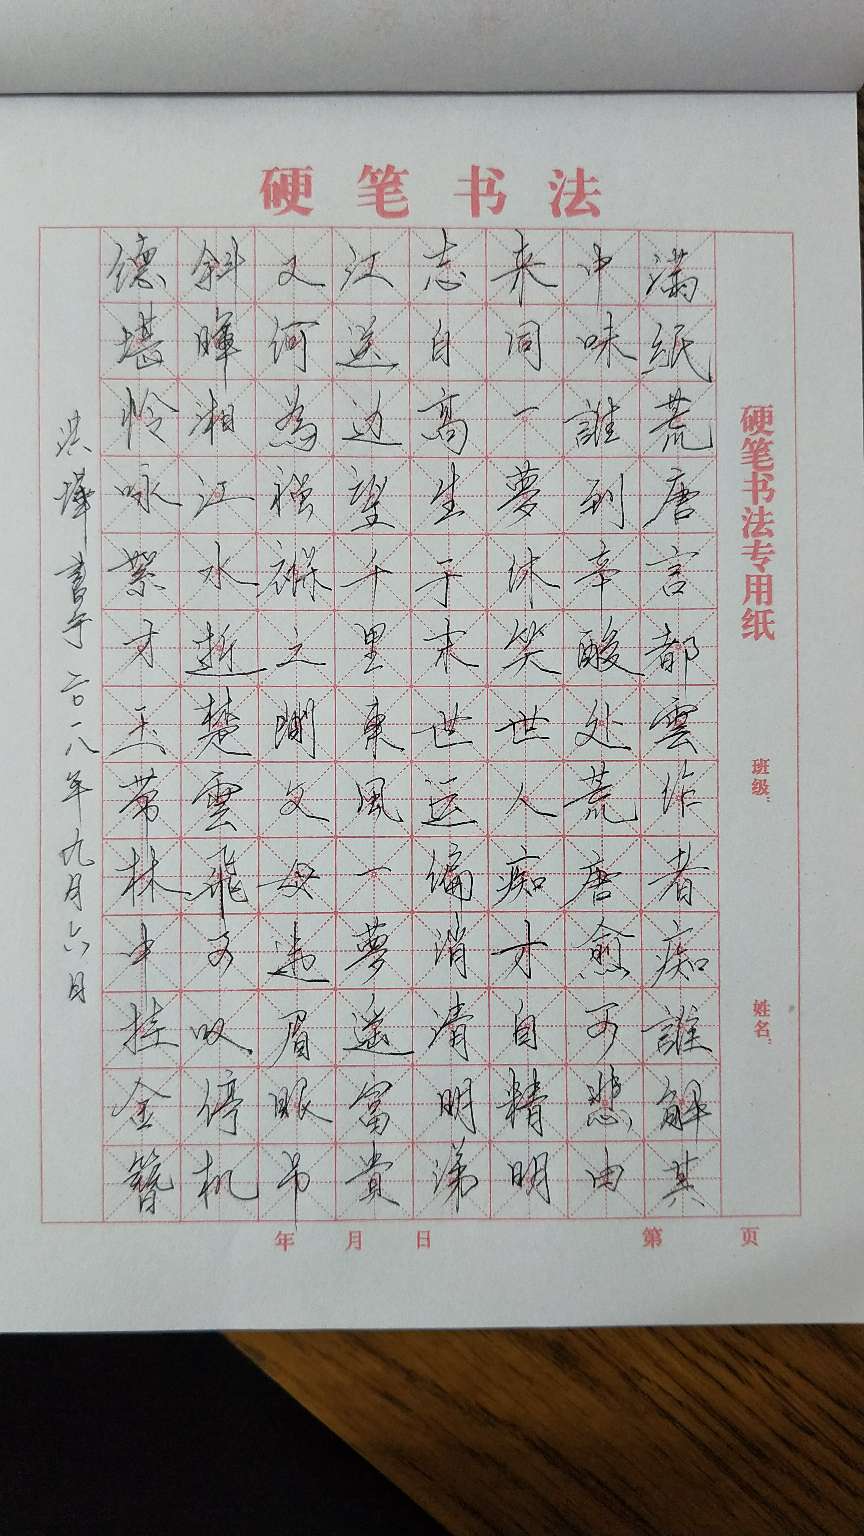 硬笔书法
硬笔书法专用纸
班级:
姓名:
满紙荒唐言都雲作者痴誰解其
中味誰到辛酸处荒唐愈可悲由
来同一夢休笑世人痴才自精明
志自高生于末世运偏消清明涕
江送边望千里東風一夢遥富貴
又何為襁褓之間父母违眉眼吊
斜暉湘江水逝楚雲飛可叹停机
德堪怜咏絮才玉带林中挂金簪
洪 書于二〇一八年九月六日
年 月 日
第 页